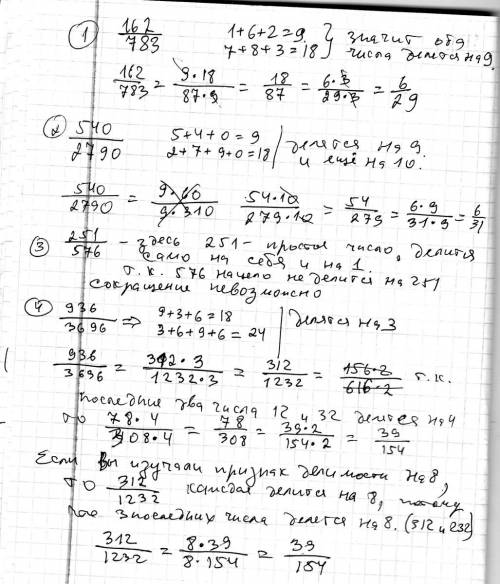 ① 162/783 1+6+2=9 } значит оба
7+8+3=18 } числа делятся на 9.
162/783 = 9·18/87·9 = 18/87 = 6·3/29·3 = 6/29
② 540/2790 5+4+0=9 | делятся на 9
2+7+9+0=18 | и ещё на 10.
540/2790 = 9·60/9·310 54·10/279·10 = 54/279 = 6·9/31·9 = 6/31
③ 251/576 - здесь 251 - простое число, делится
само на себя и на 1.
т.к. 576 нацело не делится на 251
сокращение невозможно
④ 936/3696 ⇒ 9+3+6=18 | делятся на 3
3+6+9+6=24
936/3696 = 312·3/1232·3 = 312/1232 = 156·2/616·2 т.к.
последние два числа 12 и 32 делятся на 4
то 78·4/308·4 = 78/308 = 39·2/154·2 = 39/154
Если вы изучали признак делимости на 8,
то 312/1232 каждая делится на 8, потому
что 3 последних числа делятся на 8. (312 и 232)
312/1232 = 8·39/8·154 = 39/154